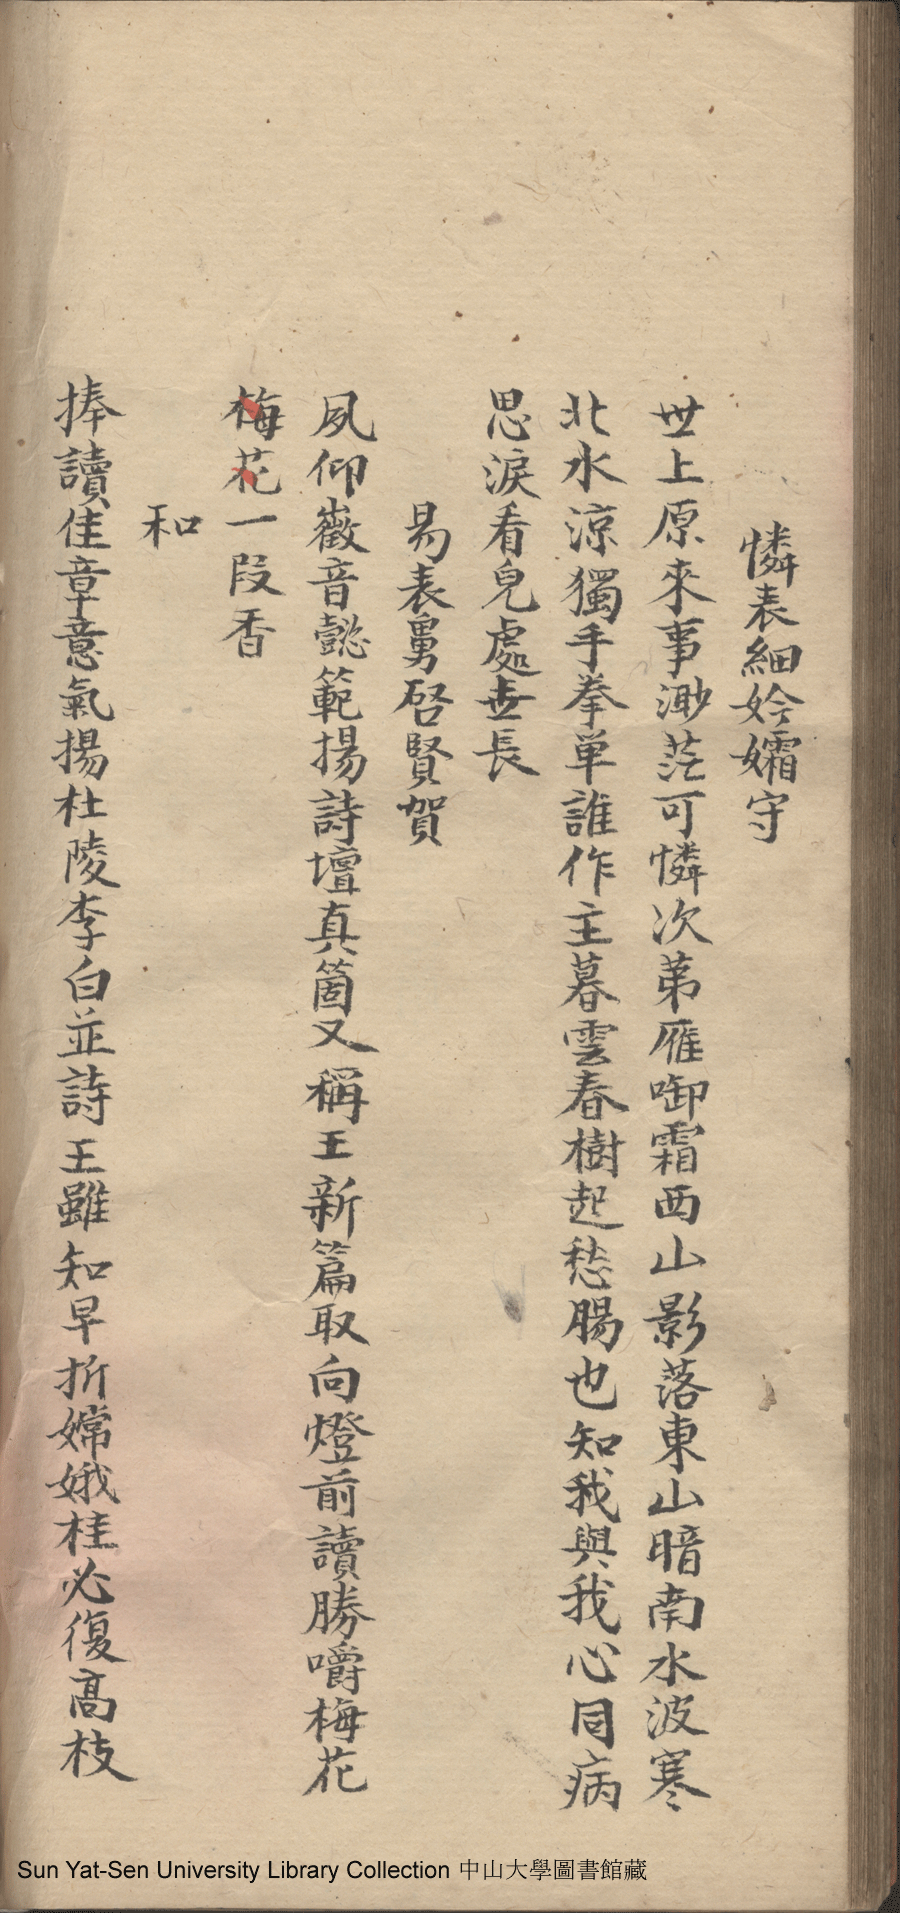 憐表細妗孀守
世上原來事渺茫可憐次苐雁啣霜西山影落東山暗南水波寒
北水涼獨手拳单誰作主暮雲春樹起愁腸也知我與我心同病
思淚看兒處世長
易表舅啓賢賀
夙仰徽音懿範揚詩壇真箇又稱王新篇取向燈前讀勝嚼梅花
梅花一段香
和
捧讀佳章意氣揚杜陵李白並詩王雖知早折嫦娥桂必復高枝
Sun Yat-Sen University Library Collection 中山大學圖書館藏